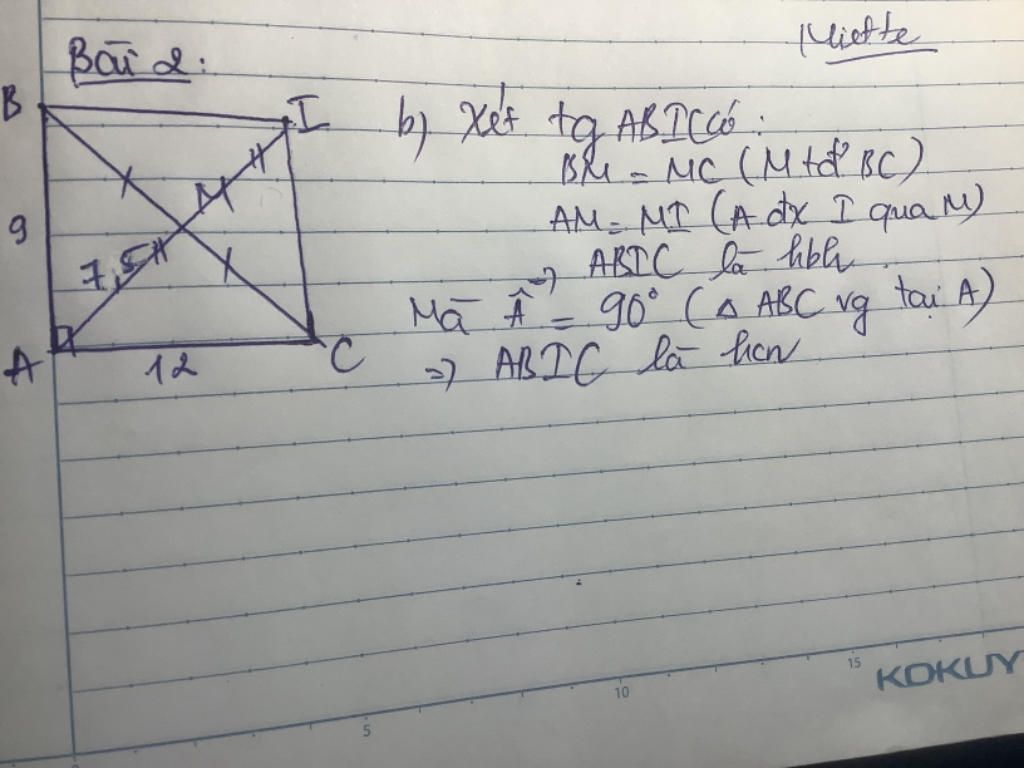 Miette
Bài 2:
B
I
b) Xét tg ABIC có:
BM = MC (M tđ BC)
M
9
AM = MI (A đx I qua M)
7,5
=> ABIC là hbh
Mà Â = 90° (Δ ABC vg tại A)
A
12
C
=> ABIC là hcn
5
10
15
KOKUY